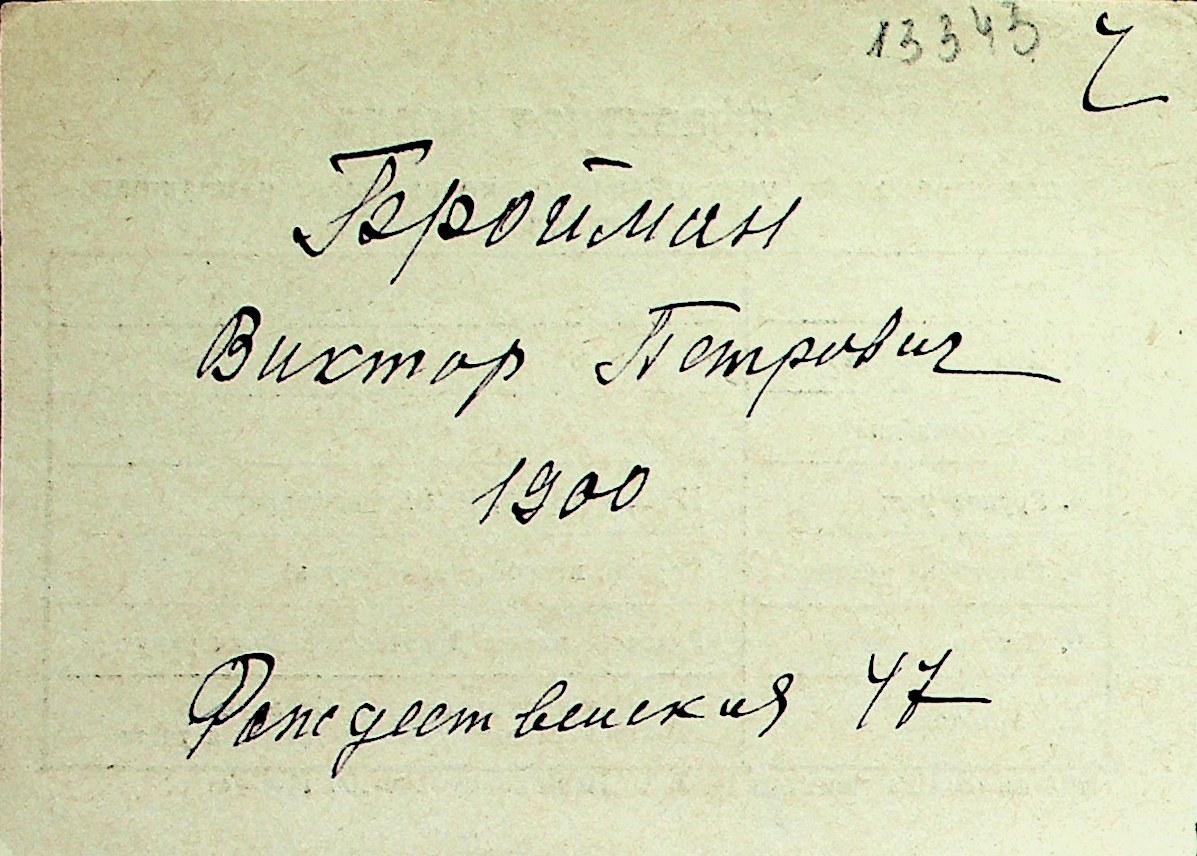 13343
Бройман
Виктор Петрович
1900
Рождественская 47